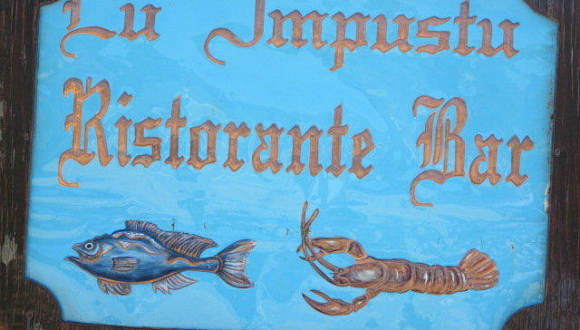 Lu Impustu
Ristorante Bar